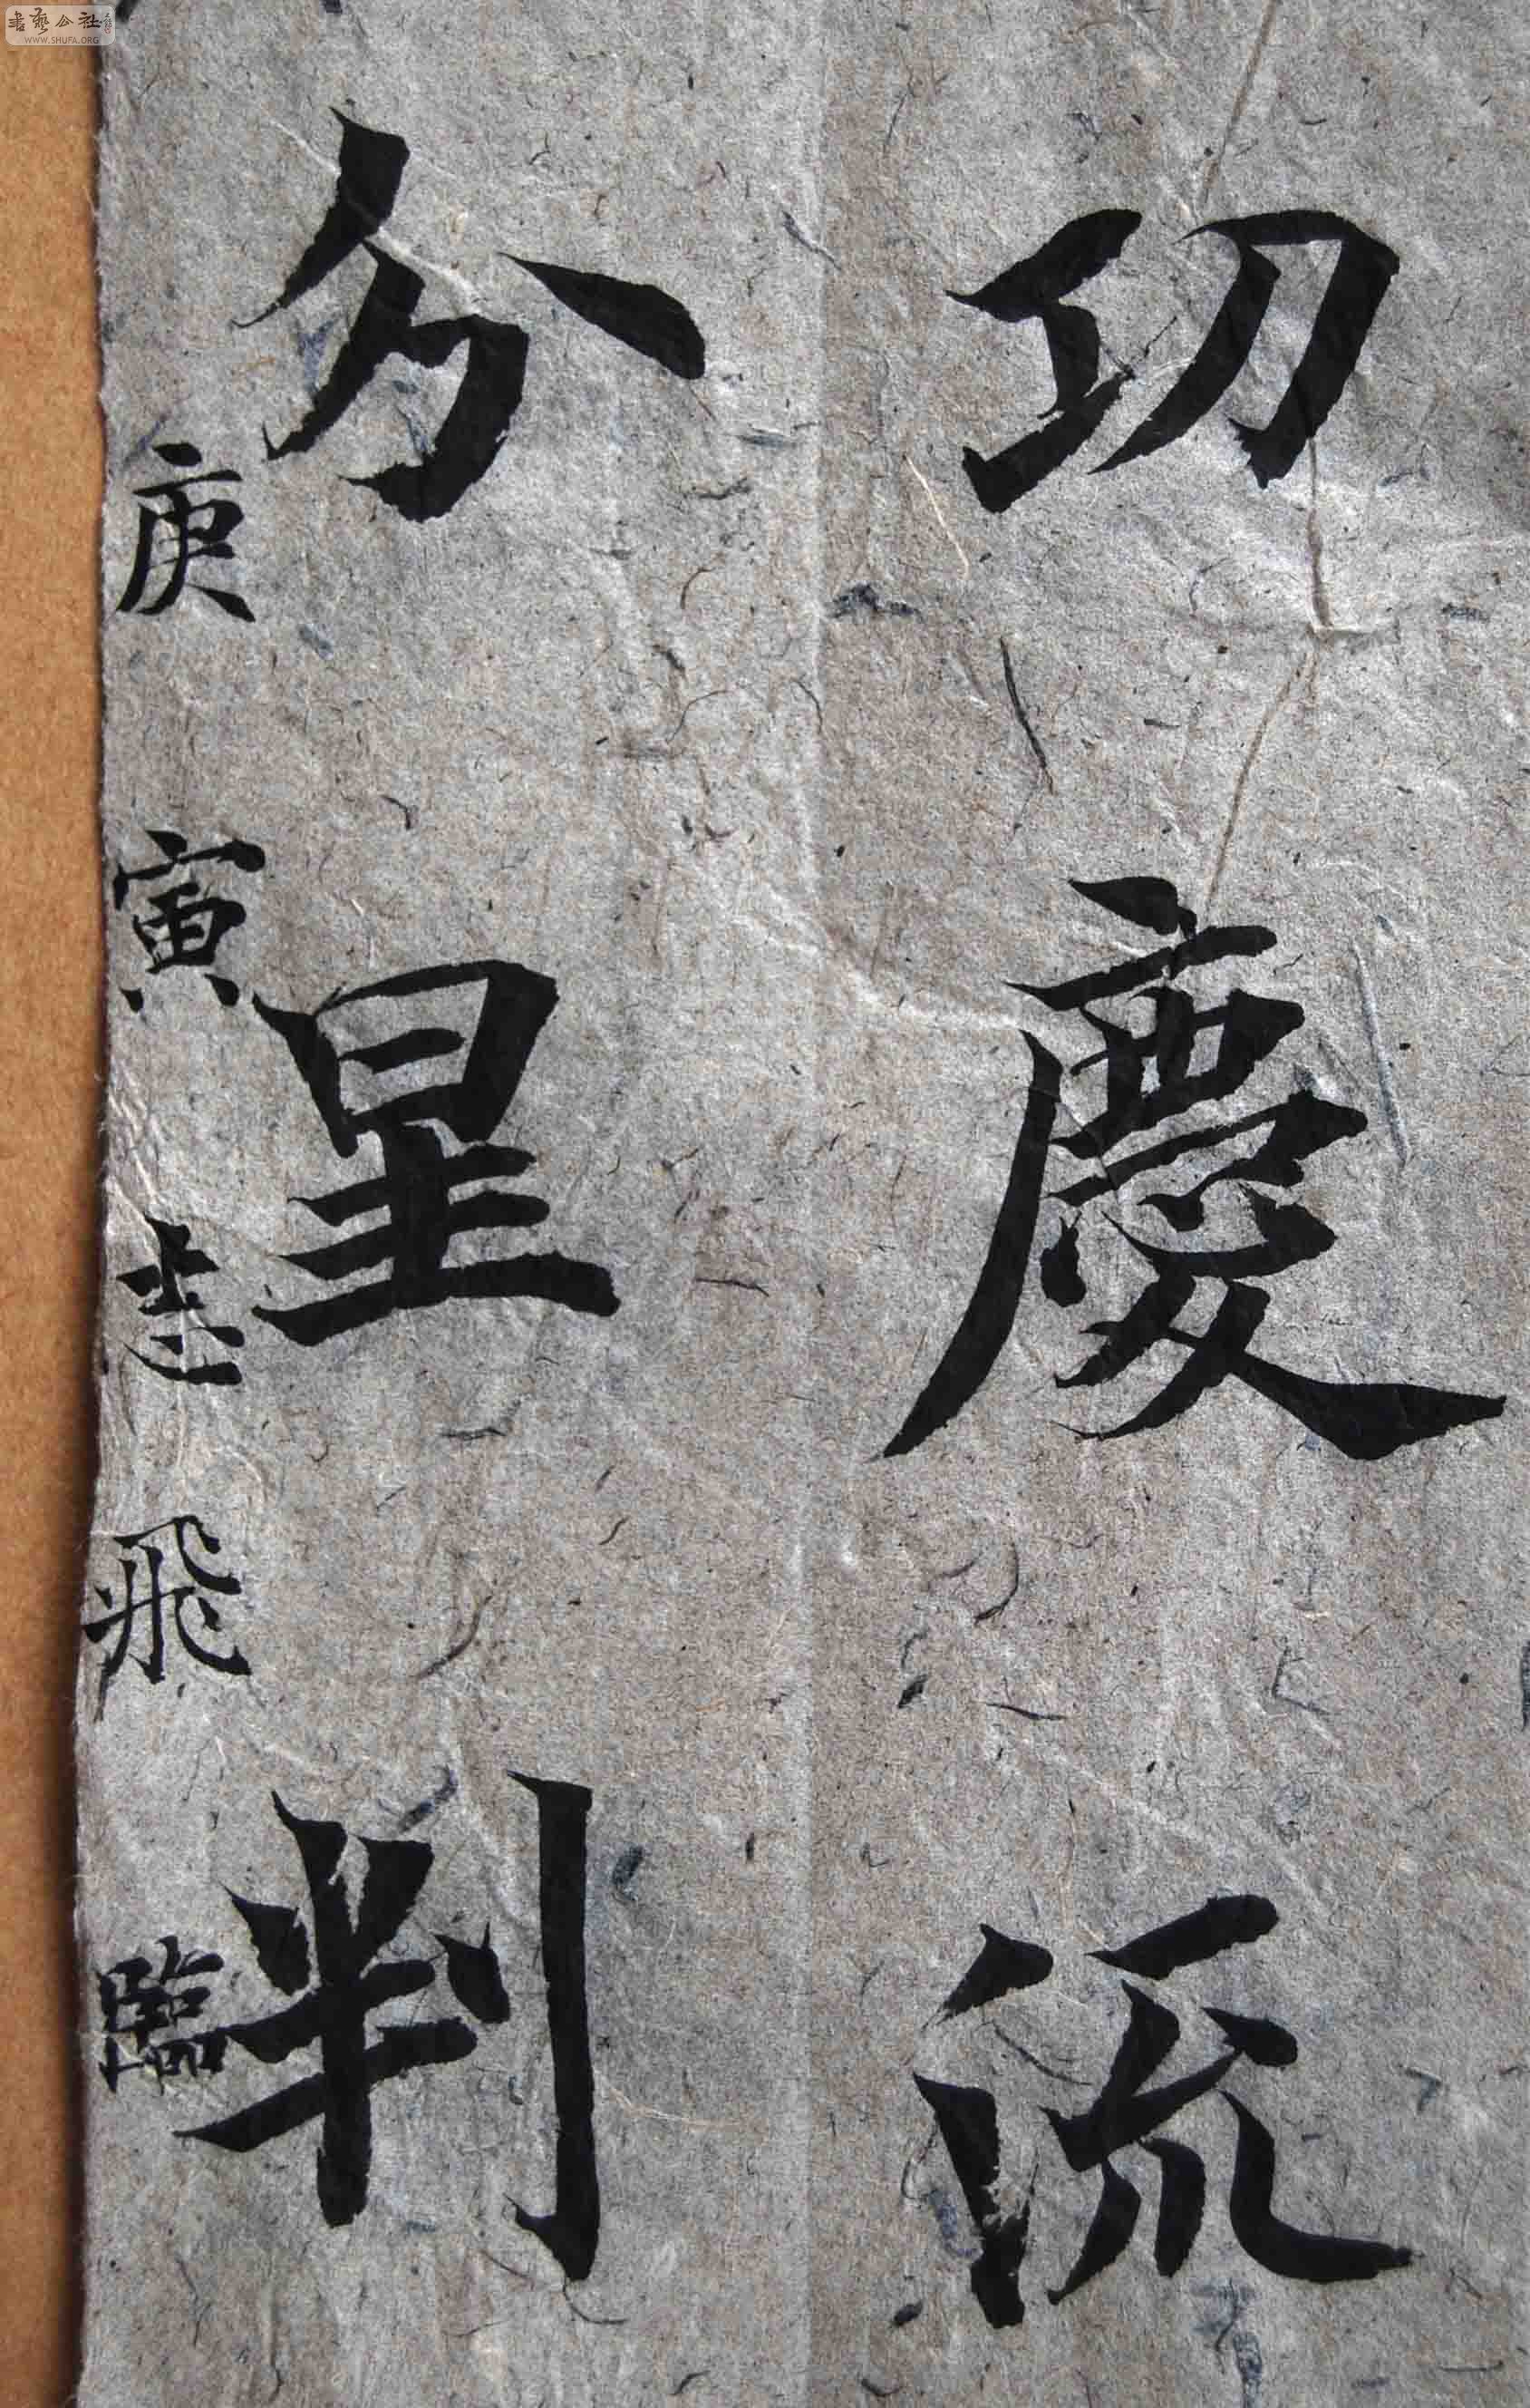 功慶流
分星判
庚寅圭飛臨
書藝公社
WWW.SHUFA.ORG